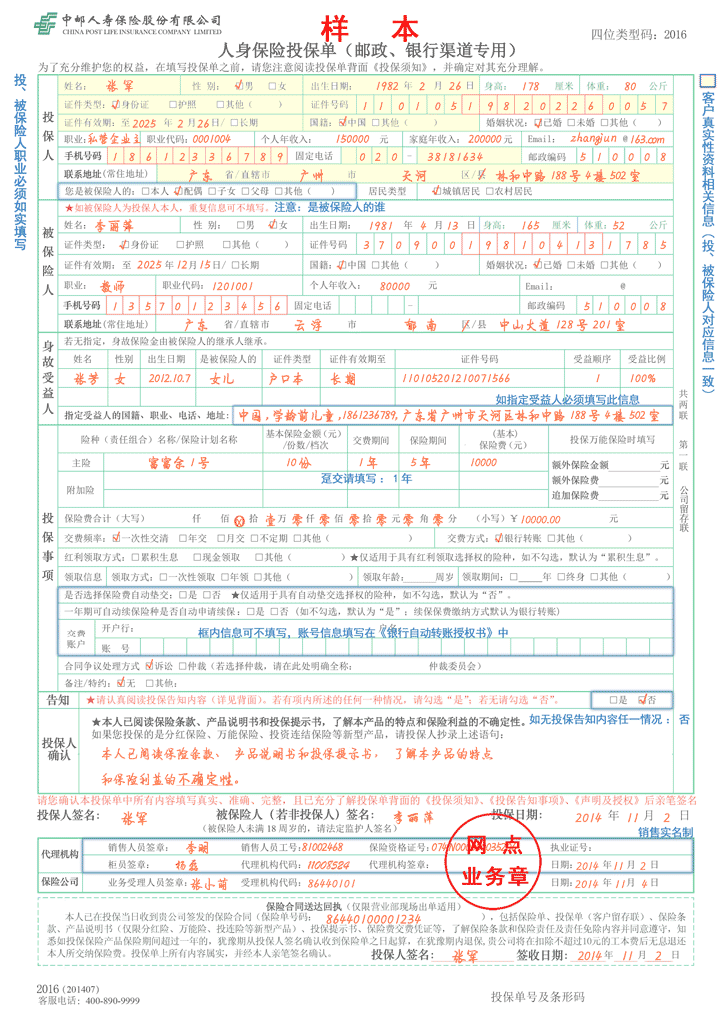 中邮人寿保险股份有限公司
CHINA POST LIFE INSURANCE COMPANY LIMITED
样 本
四位类型码：2016
人身保险投保单（邮政、银行渠道专用）
为了充分维护您的权益，在填写投保单之前，请您注意阅读投保单背面《投保须知》，并确定对其充分理解。
投、被保险人职业必须如实填写
客户真实性资料相关信息（投、被保险人对应信息一致）
投保人
姓名： 张军 性 别：☑男 □女 出生日期： 1982 年 2 月 26 日 身高： 178 厘米 体重： 80 公斤
证件类型：☑身份证 □护照 □其他（ ） 证件号码 110105198202260057
证件有效期：至 2025 年 2 月 26 日/ □长期 国籍：☑中国 □其他（ ） 婚姻状况：☑已婚 □未婚 □其他（ ）
职业：私营企业主 职业代码：0001004 个人年收入： 150000 元 家庭年收入：200000元 Email： zhangjun @163.com
手机号码 18612336789 固定电话 020-38181634 邮政编码 510008
联系地址(常住地址) 广东 省/直辖市 广州 市 天河 区/县 林和中路188号4楼502室
您是被保险人的：□本人 ☑配偶 □子女 □父母 □其他（ ） 居民类型 ☑城镇居民 □农村居民
被保险人
★如被保险人为投保人本人，重复信息可不填写。 注意：是被保险人的谁
姓名：李丽萍 性 别： □男 ☑女 出生日期： 1981 年 4 月 13 日 身高： 165 厘米 体重：52 公斤
证件类型： ☑身份证 □护照 □其他（ ） 证件号码 370901198104131785
证件有效期：至 2025年12月15日/ □长期 国籍：☑中国 □其他（ ） 婚姻状况：☑已婚 □未婚 □其他（ ）
职业： 教师 职业代码：1201001 个人年收入： 80000 元 Email： @
手机号码 13570123456 固定电话 - 邮政编码 510008
联系地址(常住地址) 广东 省/直辖市 云浮 市 郁南 区/县 中山大道128号201室
身故受益人
若无指定，身故保险金由被保险人的继承人继承。
姓名 性别 出生日期 是被保险人的 证件类型 证件有效期至 证件号码 受益顺序 受益比例
张芳 女 2012.10.7 女儿 户口本 长期 110105201210071566 1 100%
如指定受益人必须填写此信息
指定受益人的国籍、职业、电话、地址： 中国，学龄前儿童，1861236789，广东省广州市天河区林和中路188号4楼502室
共两联 第一联 公司留存联
投保事项
险种（责任组合）名称/保险计划名称 基本保险金额（元）/份数/档次 交费期间 保险期间 (基本)保险费(元) 投保万能保险时填写
主险 富富余1号 10份 1年 5年 10000 额外保险金额 元
额外保险费 元
附加险 趸交请填写：1 年 追加保险费 元
保险费合计（大写） 仟 佰 ⊗ 拾 壹万 零仟 零佰 零拾 零元 零角 零分 （小写）￥10000.00 元
交费频率：☑一次性交清 □年交 □月交 □不定期 □其他（ ） 交费方式：☑银行转账 □其他（ ）
红利领取方式：□累积生息 □现金领取 □其他（ ）★仅适用于具有红利领取选择权的险种，如不勾选，默认为“累积生息”。
领取信息 领取方式：□一次性领取 □年领 □其他（ ） 领取年龄： 周岁 领取期间：□ 年 □终身 □其他（ ）
是否选择保险费自动垫交：□是 □否 ★仅适用于具有自动垫交选择权的险种，如不勾选，默认为“否”。
一年期可自动续保险种是否自动申请续保：□是 □否 (如不勾选，默认为“是”；续保保费缴纳方式默认为银行转账)
交费账户 开户行： 户名
框内信息可不填写，账号信息填写在《银行自动转账授权书》中
账 号
合同争议处理方式 ☑诉讼 □仲裁（若选择仲裁，请在此处明确全称： 仲裁委员会）
备注/特约：☑无 □其他：
告知 ★请认真阅读投保告知内容（详见背面）。若有项内所述的任何一种情况，请勾选“是”；若无请勾选“否”。 □是 ☑否
投保人确认
★本人已阅读保险条款、产品说明书和投保提示书，了解本产品的特点和保险利益的不确定性。 如无投保告知内容任一情况：否
如果您投保的是分红保险、万能保险、投资连结保险等新型产品，请投保人抄录上述语句：
本人已阅读保险条款、产品说明书和投保提示书，了解本产品的特点
和保险利益的不确定性。
请您确认本投保单中所有内容填写真实、准确、完整，且已充分了解投保单背面的《投保须知》、《投保告知事项》、《声明及授权》后亲笔签名
投保人签名： 张军 被保险人（若非投保人）签名： 李丽萍 投保日期： 2014 年 11 月 2 日
（被保险人未满18周岁的，请法定监护人签名）
销售实名制
代理机构 销售人员签章： 李明 销售人员工号：81002468 保险资格证号： 执业证号：
柜员签章： 杨磊 代理机构代码：11008524 代理机构签章： 日期：2014 年 11 月 2 日
网 点
业务章
保险公司 业务受理人员签章：张小萌 受理机构代码：86440101 日期：2014 年 11 月 4 日
保险合同送达回执（仅限营业部现场出单适用）
本人已在投保当日收到贵公司签发的保险合同（保险单号码： 86440100001234 ），包括保险单、投保单（客户留存联）、保险条
款、产品说明书（仅限分红险、万能险、投连险等新型产品）、投保提示书、保险费交费凭证等，了解保险条款和保险责任及责任免除内容并同意遵守，知
悉如投保保险产品保险期间超过一年的，犹豫期从投保人签名确认收到保险单之日起算，在犹豫期内退保，贵公司将在扣除不超过10元的工本费后无息退还
本人所交纳保险费。投保单上所有内容属实，并经本人亲笔签名确认。 投保人签名： 张军 签收日期：2014年 11 月 2 日
2016 (201407)
客服电话：400-890-9999
投保单号及条形码